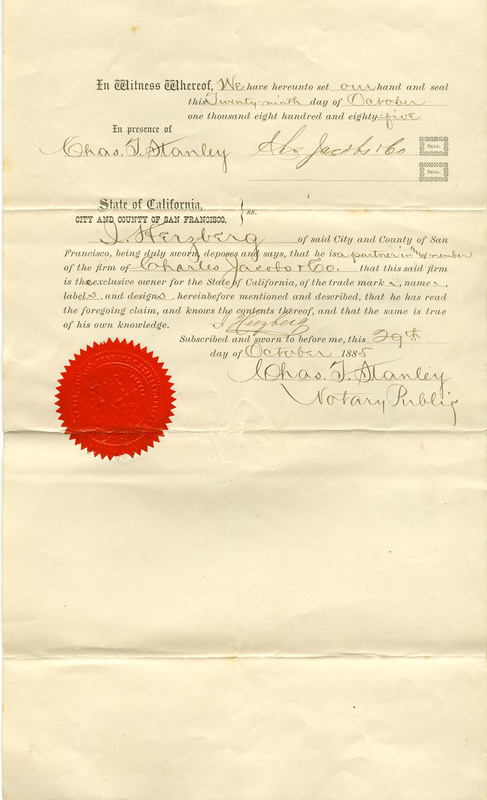 In Witness Whereof, We have hereunto set our hand and seal
this Twenty-ninth day of October
one thousand eight hundred and eighty-five
In presence of
Chas. T. Stanley Jacobs & Co
Seal.
Seal.
State of California,
CITY AND COUNTY OF SAN FRANCISCO. } ss.
I. Herzberg of said City and County of San
Francisco, being duly sworn, deposes and says, that he is a partner in & member
of the firm of Charles Jacobs & Co. that this said firm
is the exclusive owner for the State of California, of the trade mark s, name s,
label s, and design s, hereinbefore mentioned and described, that he has read
the foregoing claim, and knows the contents thereof, and that the same is true
of his own knowledge. I. Herzberg
Subscribed and sworn to before me, this 29th
day of October 1885
Chas. T. Stanley
Notary Public